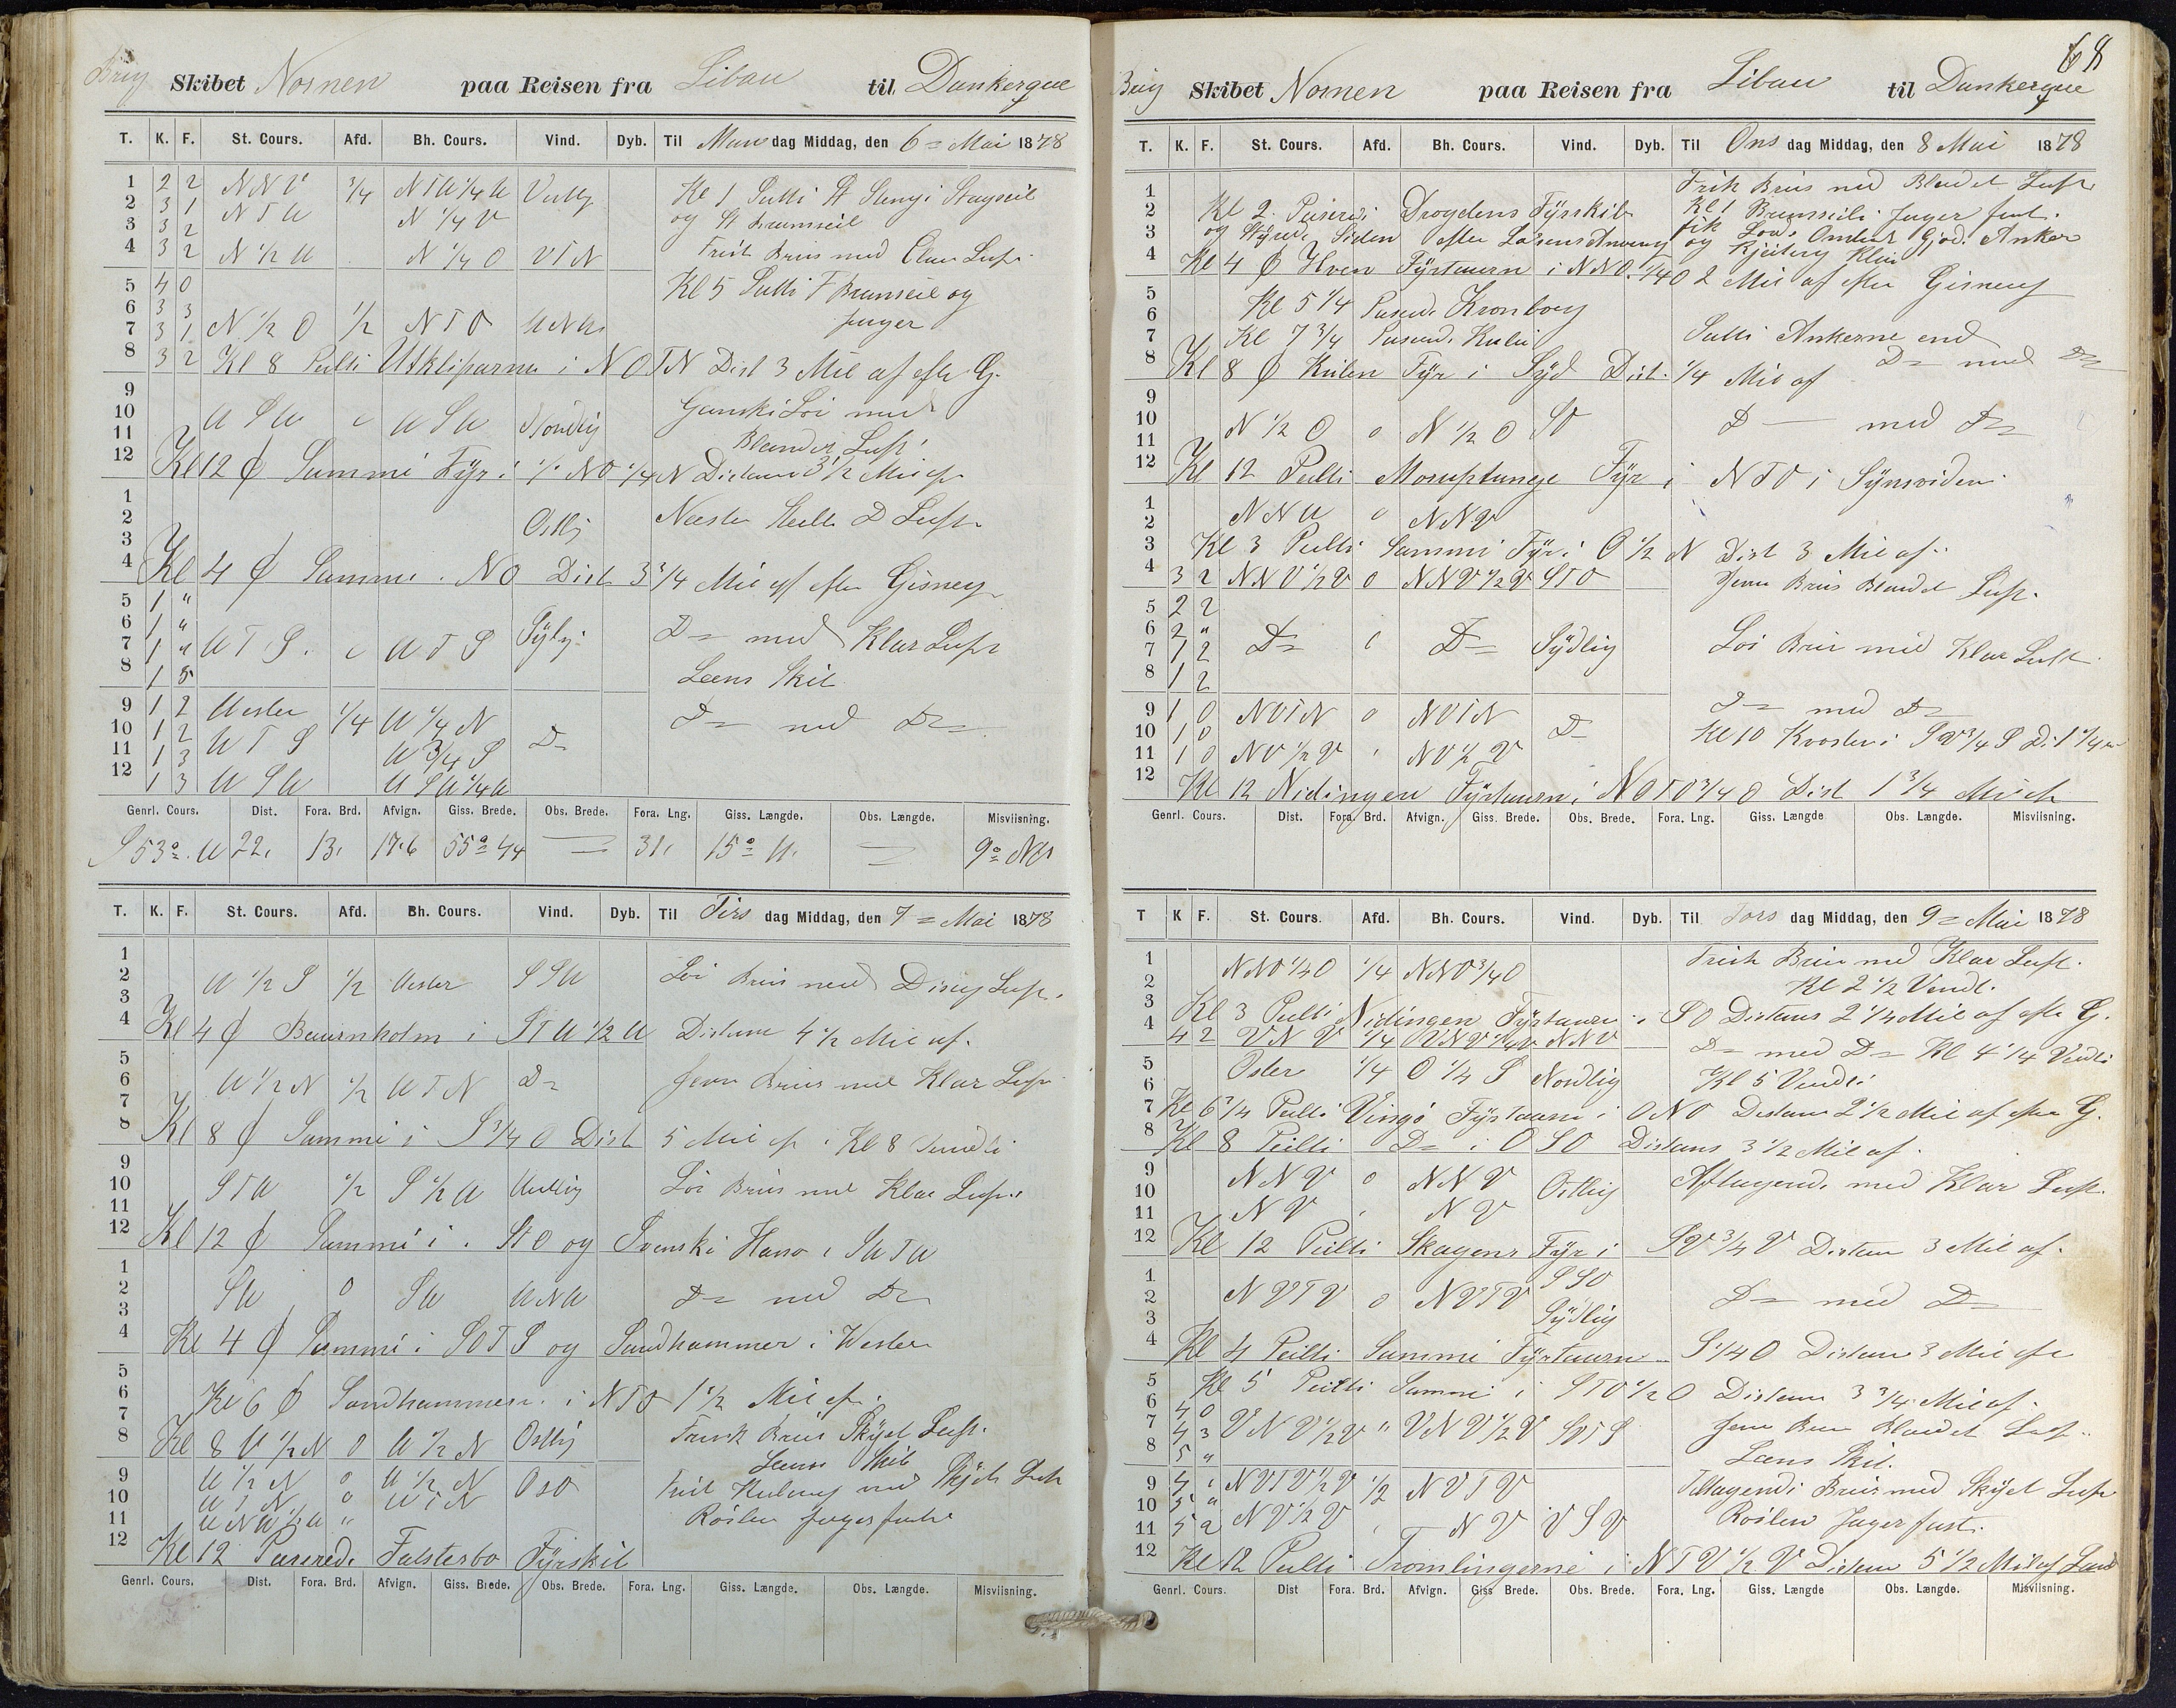 Brig Skibet Nornen paa Reisen fra Libau til Dunkerque
T. K. F. St. Cours. Afd. Bh. Cours. Vind. Dyb. Til Man dag Middag, den 6 = Mai 1878
1 2 2 N N V 3/4 N T W 1/4 W Vestlig Kl 1 St Stengi Stagseil
2 3 1 N T W N 1/4 V og St Bramseil
3 3 2
4 3 2 N 1/2 W N 1/4 O V T N Frisk Briis med Luft
5 4 0 Kl 5 F Bramseil og
6 3 3 Jager
7 3 1 N 1/2 O 1/2 N T O
8 3 2 Kl 8 Peilti Utkliparna i N O T N Dist 3 Mil af efter G.
9
10 W S W W S W Nordlig Ganski Löi med
11 Blandet Luft
12 Kl 12 Sammi Fyr i NO 1/4 N Distance 3 1/2 Mil af
1
2 Ostlig Næsten Stille D Luft
3
4 Kl 4 Sammi i NO Dist 3 3/4 Mil af efter Gisning
5 1 "
6 1 "
7 1 " W T S W T S D = med Klar Luft
8 1 Læns Skib
9 1 2 Wester 1/4 W 1/4 N D = med D =
10 1 2 W T S W 3/4 S D =
11 1 3
12 1 3 W S W W S W 1/4 W
Genrl. Cours. Dist. Fora. Brd. Afvign. Giss. Brede. Obs. Brede. Fora. Lng. Giss. Længde. Obs. Længde. Misviisning.
S 53° W 22. 13. 17.6 55° 44 — 31. 15° 11. — 9° NV
T. K. F. St. Cours. Afd. Bh. Cours. Vind. Dyb. Til Tirs dag Middag, den 7 = Mai 1878
1
2 W 1/2 S 1/2 Wester S S W Löi Briis med Disig Luft.
3
4 Kl 4 Baurnholm i S T W 1/2 W Distance 4 1/2 Mil af.
5
6 W 1/2 N 1/2 W T N D = Jevn Briis med Klar Luft
7
8 Kl 8 Sammi i S 3/4 O Dist 5 Mil af. Kl 8 Vendti
9
10 S T W 1/2 S 1/2 W Westlig Löi Briis med Klar Luft.
11
12 Kl 12 Sammi i S T O og Svenski i S W T W
1
2 S W 0 S W W N W D = med D =
3
4 Kl 4 Sammi i S O T S og Sandhammer i Wester
5
6 Kl 6 Sandhammeren i N T O 1 1/2 Mil af.
7 Frisk Briis Skyet Luft.
8 Kl 8 W 1/2 N 0 W 1/2 N Ostlig Læns Skib
9 W 1/2 N 0 W 1/2 N O S O Frisk Kuling med Skyet Luft
10 W T N 0 W T N
11 W N W 1/2 W " Röilen Jager fast
12 Kl 12 Paserede Falsterbo Fyrskib
Genrl. Cours. Dist. Fora. Brd. Afvign. Giss. Brede. Obs. Brede. Fora. Lng. Giss. Længde. Obs. Længde. Misviisning.
68
Brig Skibet Nornen paa Reisen fra Libau til Dunkerque
T. K. F. St. Cours. Afd. Bh. Cours. Vind. Dyb. Til Ons dag Middag, den 8 Mai 1878
1 Frisk Briis med Blandet Luft
2 Kl 2 Paseredi Drogdens Fyrskib Kl 1 Bramseili Jager fast.
3 og Styrede Siden efter Losens Anvisning fik Lods Ombord Gjord Anker og Kjetting Klar
4 Kl 4 Hven Fyrtaarn i NNO 1/4 O 2 Mil af efter Gisning
5
6 Kl 5 1/4 Paserede Kronborg
7 Kl 7 3/4 Paserede Kulen Ankerne end
8 Kl 8 Kulen Fyr i Syd Dist. 1/4 Mil af D = med D =
9
10 N 1/2 O 0 N 1/2 O SO D — med D =
11
12 Kl 12 Peilti Moruptange Fyr i N T O i Synsviden
1
2 N N W 0 N N V
3 Kl 3 Peilti Sammi Fyr i O 1/2 N Dist 3 Mil af.
4 3 2 N N V 1/2 V 0 N N V 1/2 V S T O Jevn Briis Blandet Luft.
5 2 2
6 2 "
7 1 2 D = D = Sydlig Löi Briis med Klar Luft.
8 1 2
9 1 0 N O T N 0 N O T N D = med D =
10 1 0 D = Kl 10 i SV 3/4 S
11 1 0 N O 1/2 N O 1/2
12 Kl 12 Nidingen Fyrtaarn i N O T O 3/4 O Dist 1 3/4
Genrl. Cours. Dist. Fora. Brd. Afvign. Giss. Brede. Obs. Brede. Fora. Lng. Giss. Længde Obs. Længde. Misviisning.
T K F. St. Cours. Afd. Bh. Cours. Vind. Dyb. Til Tors dag Middag, den 9 = Mai 1878
1 NNO 1/4 O 1/4 NNO 3/4 O Frisk Briis med Klar Luft.
2 Kl 2 1/2 Vendt.
3 Kl 3 Peilti Nidingen Fyrtaarn i SO Distans 2 1/4 Mil af efter G.
4 4 2 V N V 1/4 V N V 1/4 V N N V D = med D = Kl 4 1/4 Vendti
5 Oster 1/4 O 1/4 S Nordlig Kl 5 Vendti
6
7 Kl 6 3/4 Peilti Vingö Fyrtaarn i ONO Distans 2 1/2 Mil af efter G.
8 Kl 8 Peilti D = i O S O Distans 3 1/2 Mil af.
9 N N V 0 N N V Ostlig Aftagende med Klar Luft.
10
11 N V N V
12 Kl 12 Peilti Skagens Fyr i SV 3/4 V Distans 3 Mil af.
1 S S O
2 N V T V 0 N V T V D = med D =
3 Sydlig
4 Kl 4 Peilti Sammi Fyrtaarn S 1/4 O Distans 3 Mil af
5 Kl 5 Peilti Sammi i S T O 1/2 O Distans 3 3/4 Mil af.
6 4 0
7 4 3 V N V 1/2 V " V N V 1/2 V Jevn Briis Blandet Luft
8 5 " Læns Skib.
9 4 N V T V 1/2 V 1/2 N V T V Tiltagendi Briis med Skyet Luft
10 5 "
11 5 2 N V 1/2 V N V V S V Röilen Jager fast.
12 Kl 12 Peilti Tromlingerne i N T V 1/2 V Distans 5 1/2 Mil af Land
Genrl. Cours. Dist Fora. Brd. Afvign. Giss Brede. Obs. Brede. Fora. Lng. Giss. Længde Obs. Længde. Misviisning.